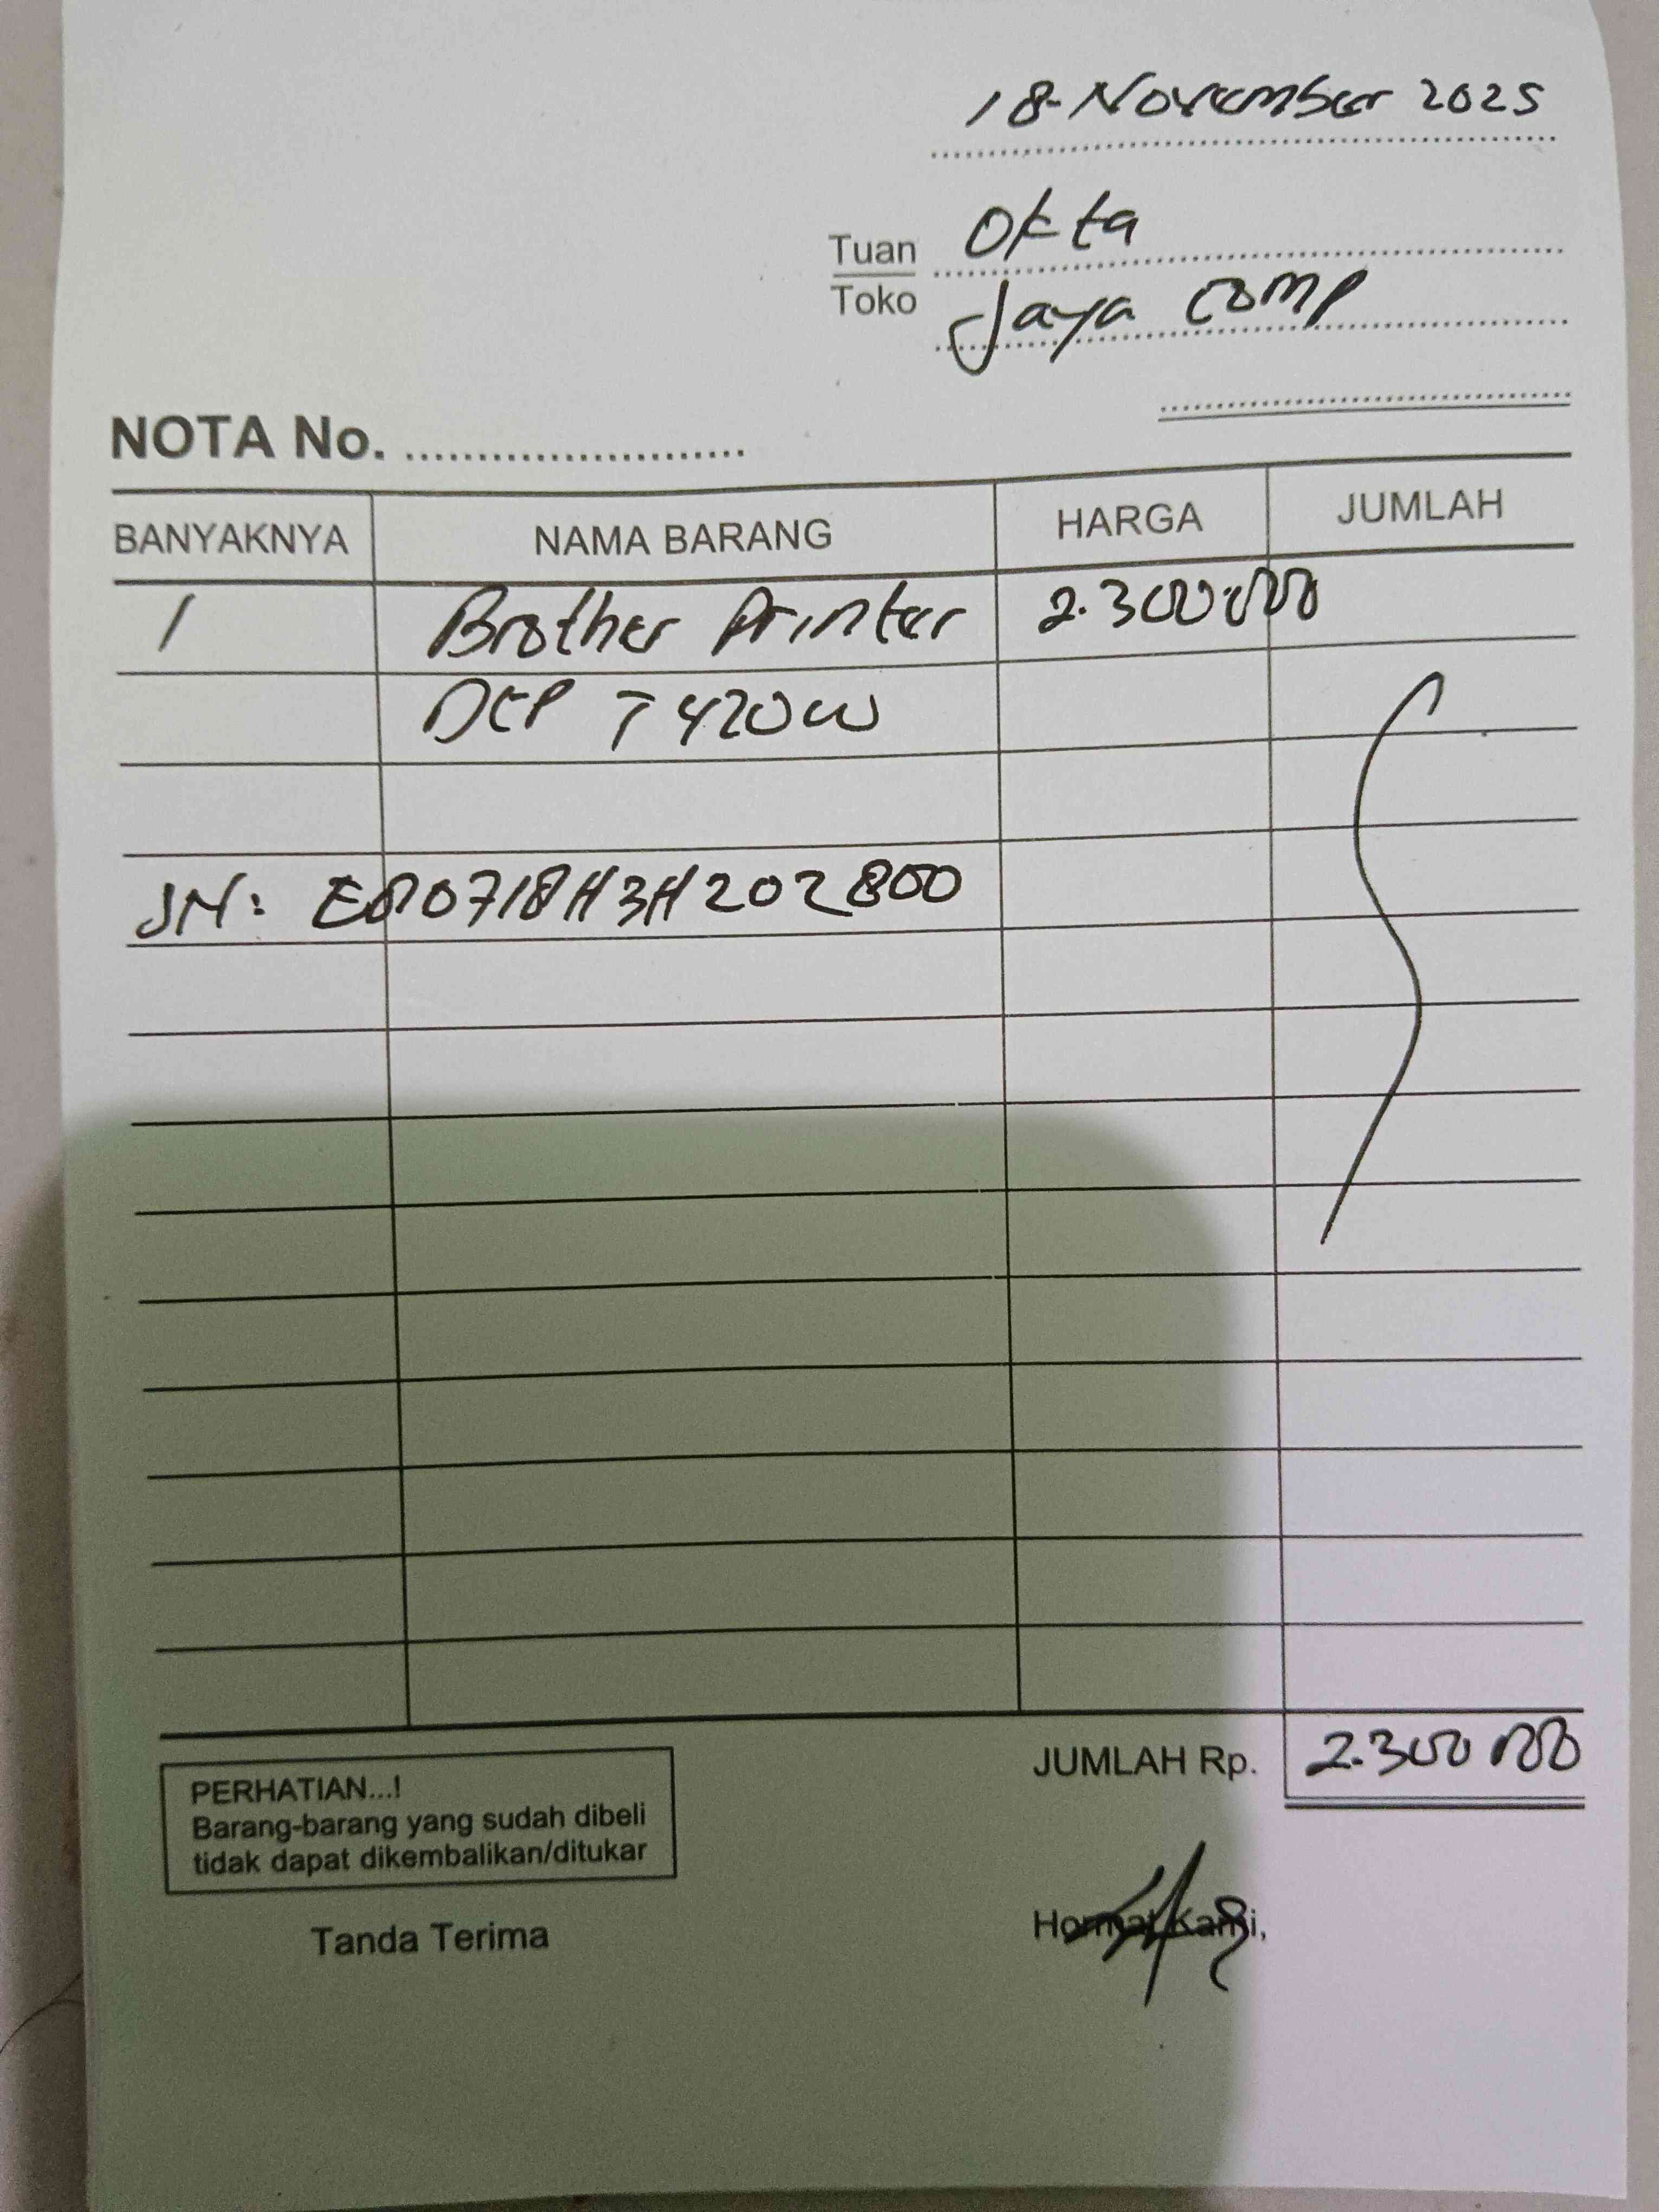 18-November 2025
Tuan Okta
Toko Jaya comp
NOTA No. ........................
BANYAKNYA NAMA BARANG HARGA JUMLAH
1 Brother Printer 2.300.000
DCP T420W
SN: E80718H3H202800
JUMLAH Rp. 2.300 000
PERHATIAN...!
Barang-barang yang sudah dibeli
tidak dapat dikembalikan/ditukar
Tanda Terima Hormat Kami,